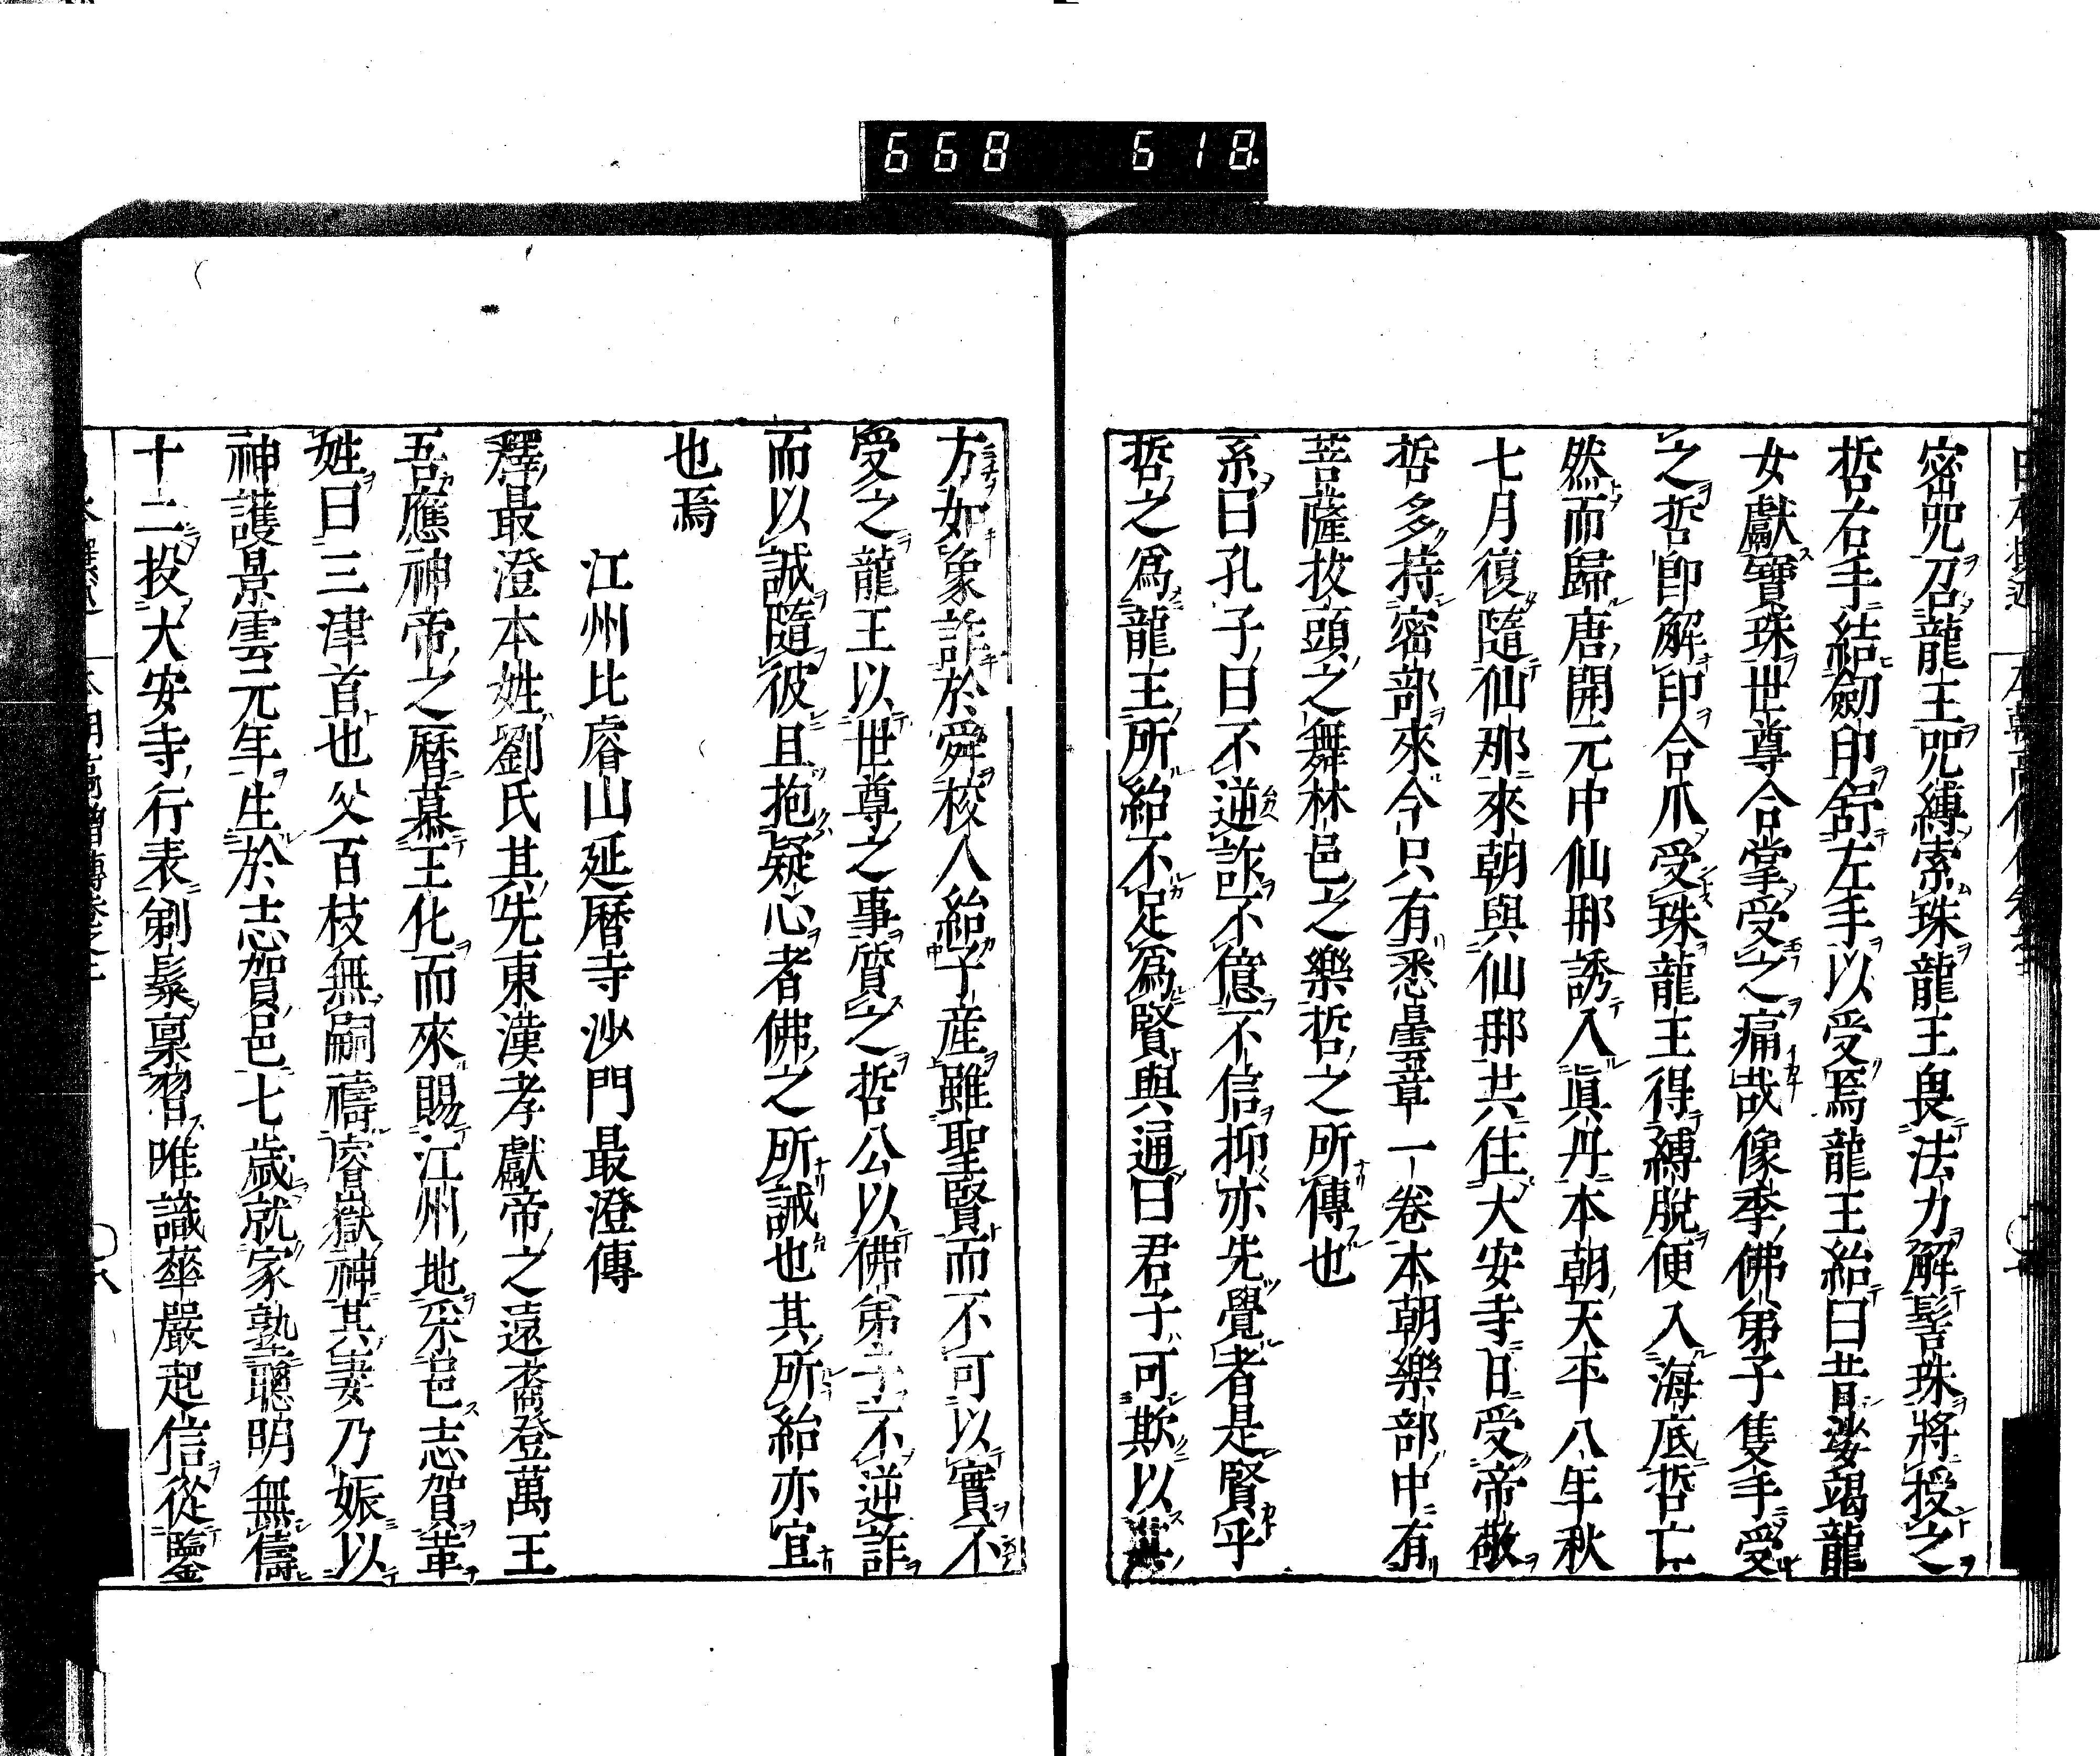 668 618
密咒召龍王咒縛索珠龍王畏法力解髻珠將授之
哲右手結劒印舒左手以受焉龍王紿曰昔娑竭龍
女獻寶珠世尊合掌受之痛哉像季佛弟子隻手受
之哲卽解印合爪受珠龍王得縛脫便入海底哲亡
然而歸唐開元中仙那誘入眞丹本朝天平八年秋
七月復隨仙那來朝與仙那共住大安寺日受帝敬
哲多持密部來今只有悉曇章一卷本朝樂部中有
菩薩拔頭之舞林邑之樂哲之所傳也
系曰孔子曰不逆詐不億不信抑亦先覺者是賢乎
哲之爲龍王所紿不足爲賢與通曰君子可欺以其
方如象詐於舜校人紿子產雖聖賢而不可以實不
受之龍王以世尊之事質之哲公以佛弟子不逆詐
而以誠隨彼且抱疑心者佛之所誡也其所紿亦宜
也焉
江州比睿山延曆寺沙門最澄傳
釋最澄本姓劉氏其先東漢孝獻帝之遠裔登萬王
吾應神帝之曆慕王化而來賜江州地采邑志賀革
姓曰三津首也父百枝無嗣禱睿嶽神其妻乃娠以
神護景雲元年生於志賀邑七歲就家塾聰明無儔
十二投大安寺行表剃鬀稟習唯識華嚴起信從鑒